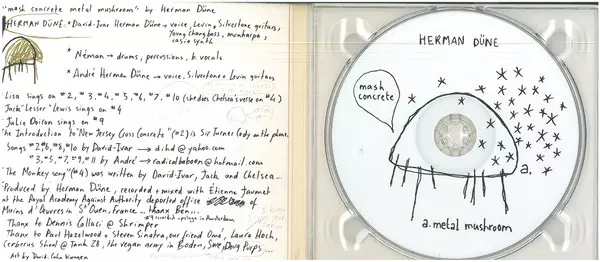 "mash concrete metal mushroom" by Herman Düne
HERMAN DÜNE. * David-Ivar Herman Düne → voice, Levin + Silvertone guitars,
Young chang bass, munharpa,
casio synth
* Néman → drums, percussions, b. vocals
* André Herman Düne → voice, Silvertone + Levin guitars
Lisa sings on *2, *3, *4, *5, *6, *7, *10 (she does Chelsea's verse on *4)
Jack "Lesser" Lewis sings on *4
Julie Doiron sings on *9
The Introduction to "New Jersey Cross Concrete" (*2) is Sir Turner Cody on the phone.
Songs *2, *6, *8, *10 by David-Ivar → dihd @ yahoo.com
*3, *5, *7, *9, *11 by André → radicalbaboon@hotmail.com
"The Monkey song" (*4) was written by David-Ivar, Jack and Chelsea...
Produced by Herman Düne, recorded + mixed with Etienne Jaumet
at the Royal Academy Against Authority deported office of
Mains d'Oeuvres in St Ouen, France ... thanx Ben...
Thanx to Dennis Callaci @ Shrimper
Thanx to Paul Hazelwood + Steven Sinatra, our friend Omé, Laura Hoch,
Cerberus Shoal @ Tank 28, the vegan army in Boden, Swe, Doug Purps ...
Art by David-
HERMAN DÜNE
mash
concrete
a.
a. metal mushroom